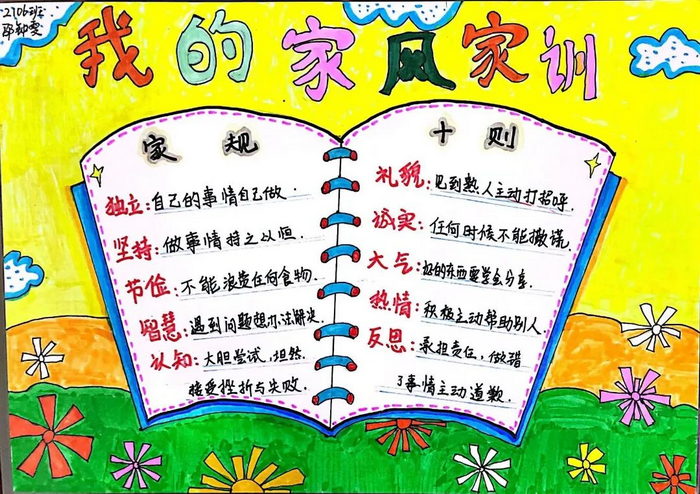 2106班
我的家风家训
家规
独立：自己的事情自己做．
坚持：做事情持之以恒．
节俭：不能浪费任何食物．
智慧：遇到问题想办法解决．
认知：大胆尝试，坦然．
接受挫折与失败．
十则
礼貌：见到熟人主动打招呼．
诚实：任何时候不能撒谎．
大气：好的东西要学会分享．
热情：积极主动帮助别人．
反思：承担责任，做错
了事情主动道歉．